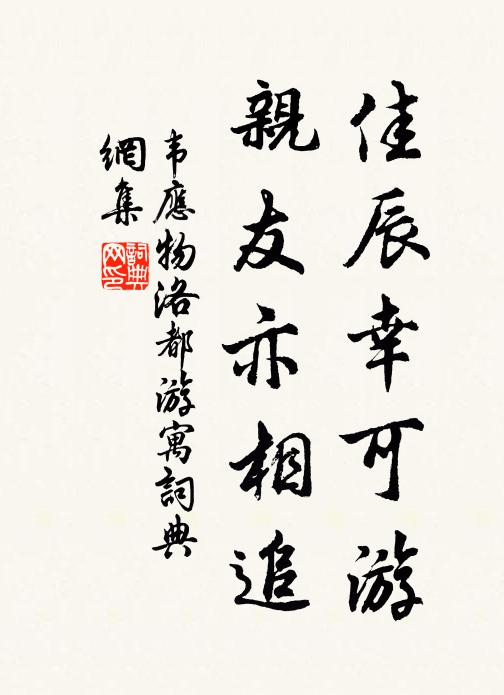 佳辰幸可游
親友亦相追
韦應物洛都游寓詞典
網集
詞典网印